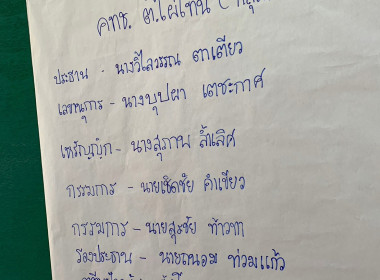 คทช. ต.ไผ่โทน (กลุ่
ประธาน - นางวิไลวรรณ ตาเตียว
เลขานุการ - นางบุปผา เตชะกาศ
เหรัญญิก - นางสุภาพ ล้ำเลิศ
กรรมการ - นายเชิดชัย คำเขียว
กรรมการ - นายสุรชัย ท้าวกา
รองประธาน - นายถนอม ท่วมแก้ว